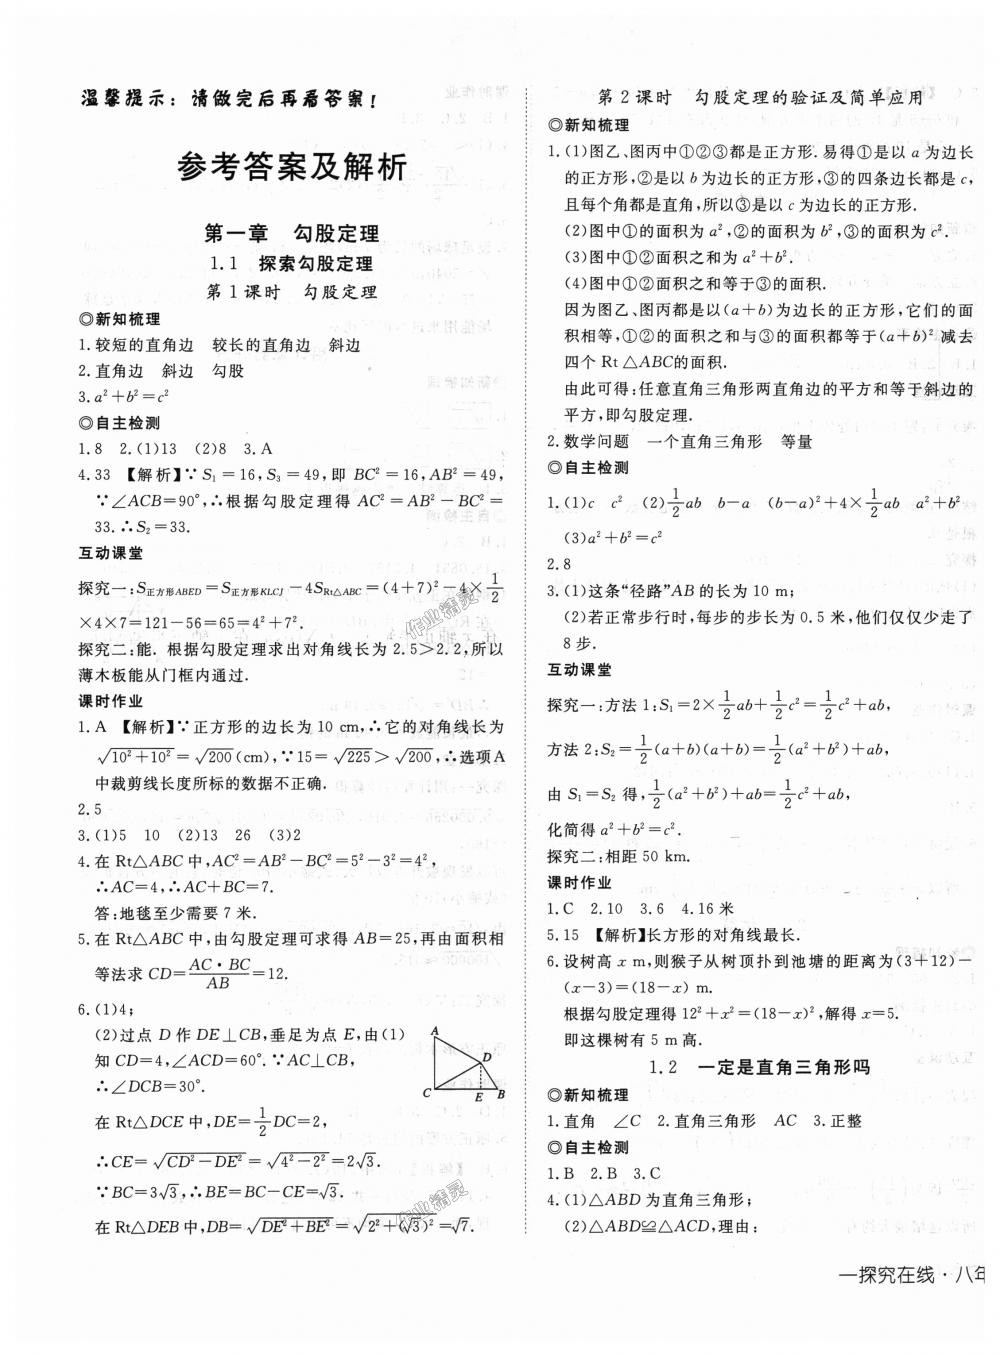 温馨提示：请做完后再看答案！
参考答案及解析
第一章　勾股定理
1.1　探索勾股定理
第1课时　勾股定理
◎新知梳理
1.较短的直角边　较长的直角边　斜边
2.直角边　斜边　勾股
3.a²+b²=c²
◎自主检测
1.8　2.(1)13　(2)8　3.A
4.33　【解析】∵S₁=16,S₃=49,即BC²=16,AB²=49,
∵∠ACB=90°,∴根据勾股定理得AC²=AB²-BC²=
33.∴S₂=33.
互动课堂
探究一:S正方形ABED=S正方形KLCJ-4SRt△ABC=(4+7)²-4×1/2
×4×7=121-56=65=4²+7².
探究二:能. 根据勾股定理求出对角线长为2.5>2.2,所以
薄木板能从门框内通过.
课时作业
1.A　【解析】∵正方形的边长为10 cm,∴它的对角线长为
√(10²+10²)=√200(cm),∵15=√225>√200,∴选项A
中裁剪线长度所标的数据不正确.
2.5
3.(1)5　10　(2)13　26　(3)2
4.在Rt△ABC中,AC²=AB²-BC²=5²-3²=4²,
∴AC=4,∴AC+BC=7.
答:地毯至少需要7米.
5.在Rt△ABC中,由勾股定理可求得AB=25,再由面积相
等法求CD=AC·BC/AB=12.
6.(1)4;
(2)过点D作DE⊥CB,垂足为点E,由(1)
知CD=4,∠ACD=60°.∵AC⊥CB,
∴∠DCB=30°.
在Rt△DCE中,DE=1/2DC=2,
∴CE=√(CD²-DE²)=√(4²-2²)=2√3.
∵BC=3√3,∴BE=BC-CE=√3.
在Rt△DEB中,DB=√(DE²+BE²)=√(2²+(√3)²)=√7.
A
D
C
E
B
第2课时　勾股定理的验证及简单应用
◎新知梳理
1.(1)图乙、图丙中①②③都是正方形.易得①是以a为边长
的正方形,②是以b为边长的正方形,③的四条边长都是c,
且每个角都是直角,所以③是以c为边长的正方形.
(2)图中①的面积为a²,②的面积为b²,③的面积为c².
(3)图中①②的面积之和为a²+b².
(4)图中①②的面积之和等于③的面积.
因为图乙、图丙都是以(a+b)为边长的正方形,它们的面
积相等,①②的面积之和与③的面积都等于(a+b)²减去
四个Rt△ABC的面积.
由此可得:任意直角三角形两直角边的平方和等于斜边的
平方,即勾股定理.
2.数学问题　一个直角三角形　等量
◎自主检测
1.(1)c　c²　(2)1/2ab　b-a　(b-a)²+4×1/2ab　a²+b²
(3)a²+b²=c²
2.8
3.(1)这条“径路”AB的长为10 m;
(2)若正常步行时,每步的步长为0.5米,他们仅仅少走了
8步.
互动课堂
探究一:方法1:S₁=2×1/2ab+1/2c²=1/2c²+ab,
方法2:S₂=1/2(a+b)(a+b)=1/2(a²+b²)+ab,
由S₁=S₂得,1/2(a²+b²)+ab=1/2c²+ab,
化简得a²+b²=c².
探究二:相距50 km.
课时作业
1.C　2.10　3.6　4.16米
5.15　【解析】长方形的对角线最长.
6.设树高x m,则猴子从树顶扑到池塘的距离为(3+12)-
(x-3)=(18-x) m.
根据勾股定理得12²+x²=(18-x)²,解得x=5.
即这棵树有5 m高.
1.2　一定是直角三角形吗
◎新知梳理
1.直角　∠C　2.直角三角形　AC　3.正整
◎自主检测
1.B　2.B　3.C
4.(1)△ABD为直角三角形;
(2)△ABD≌△ACD,理由:
—探究在线·八年
作业精灵
作业精灵